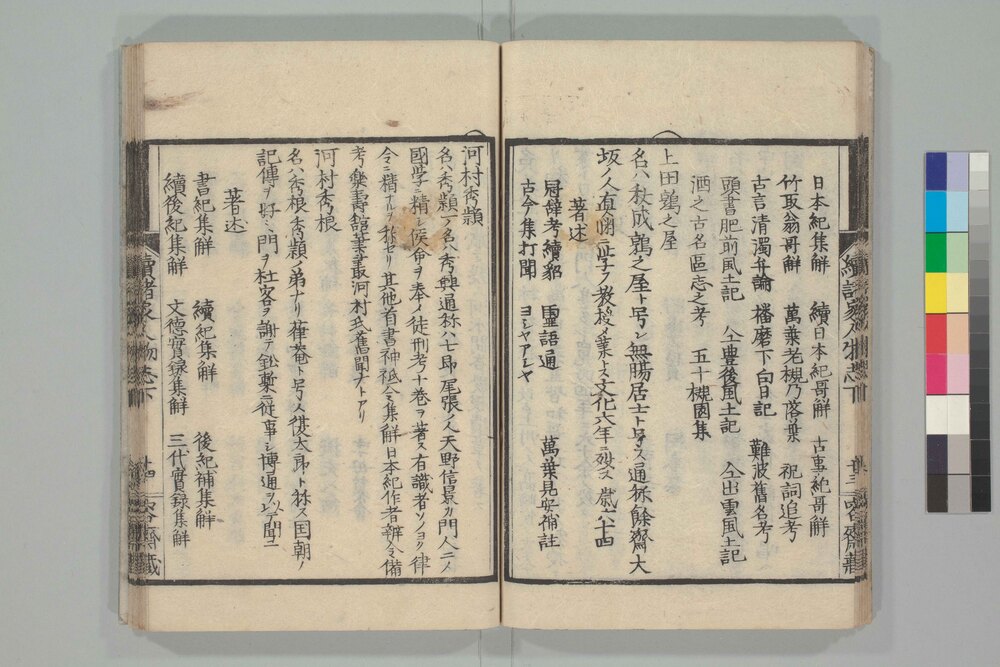 日本紀集解　續日本紀哥解　古事紀哥解
竹取翁哥解　萬葉老槻乃落葉　祝詞追考
古言清濁弁論　播磨下向日記　難波舊名考
頭書肥前風土記　仝豊後風土記　仝出雲風土記
酒之古名區志之考　五十槻園集
上田鶉之屋
名ハ秋成鶉之屋ト号シ無腸居士ト号ス通称餘齋大
坂ノ人直閑ニ学フ教授ノ業トス文化六年ニ歿ス歳六十四
著述
冠辞考續貂　靈語通　萬葉見安補註
古今集打聞　ヨシヤアシヤ
河村秀頴
名ハ秀頴一名ハ秀興通称ハ七郎尾張ノ人天野信景カ門人ニメ
國学ニ精シ侯命ヲ奉メ徒刑考十巻ヲ著ス有識者ソノヨク律
令ニ精ナルヲ称セリ其他首書神祇令集解日本紀作者辨令備
考樂壽舘叢河村氏舊聞ナトアリ
河村秀根
名ハ秀根秀頴ノ弟ナリ葎菴ト号ス復太郎ト称ス国朝ノ
記傳ヲ好ミ門ヲ杜客ヲ謝テ鈆槧ニ従事シ博通ヲ以テ聞ユ
著述
書紀集解　續紀集解　後紀補集解
續後紀集解　文德實録集解　三代實録集解
續諸家人物志下
廿四